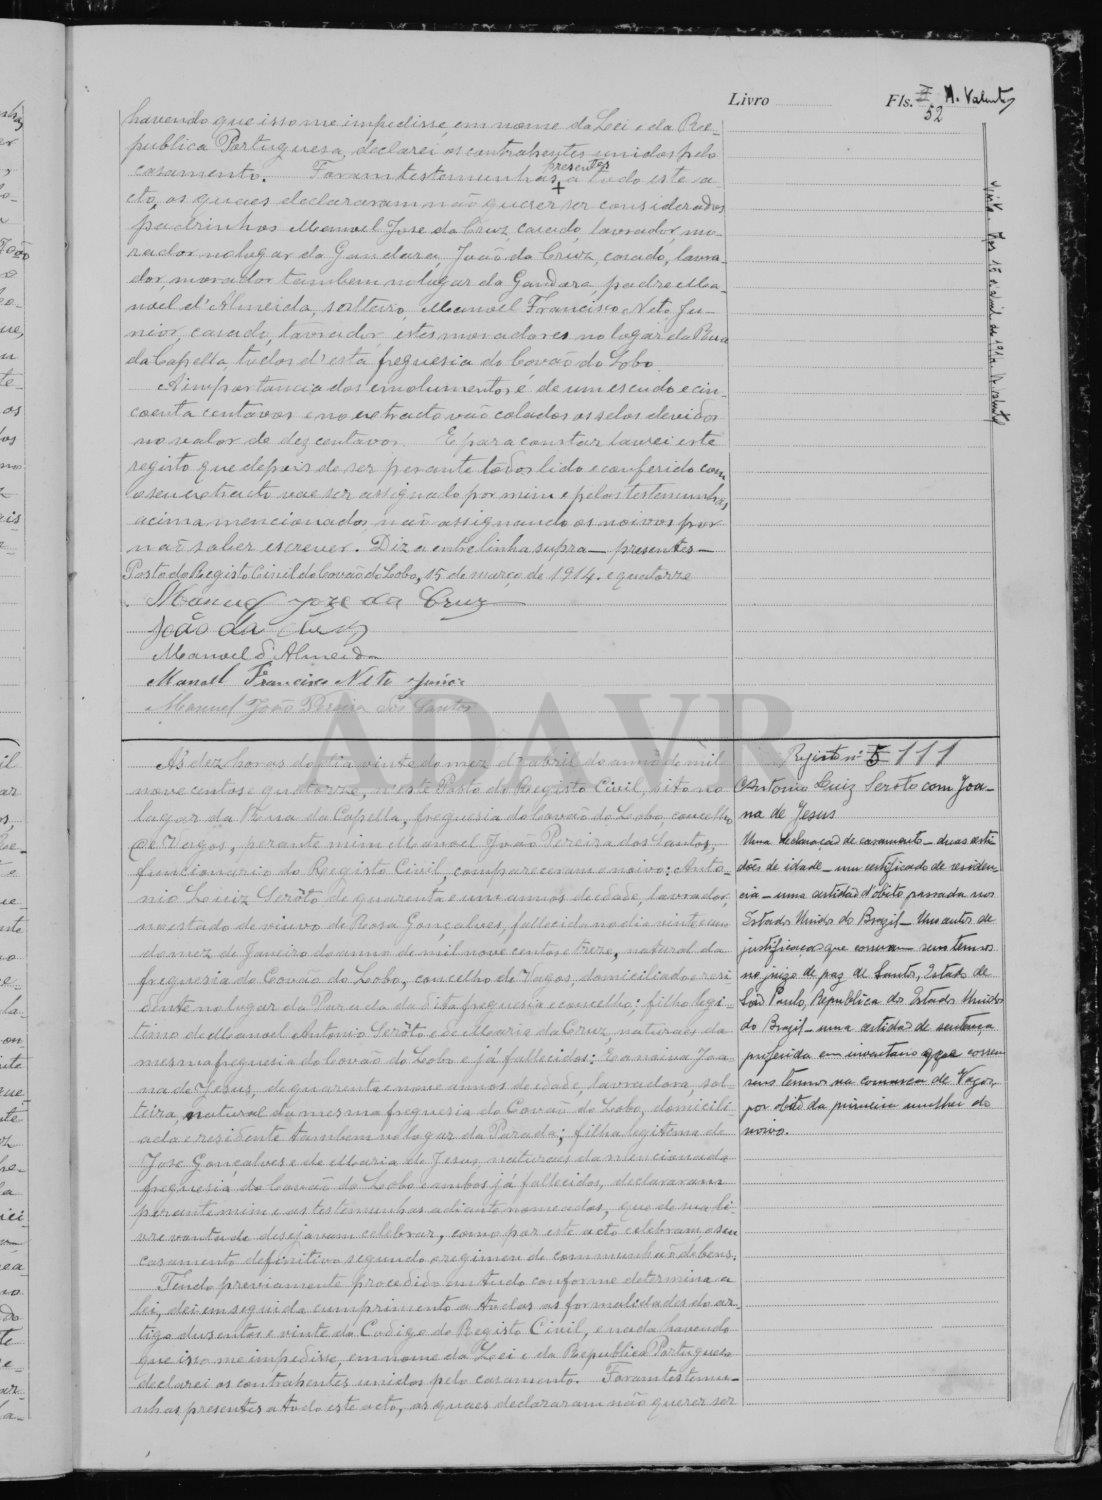 Livro Fls. 52 M. Valente
havendo que isso me impedisse, em nome da Lei e da Re-
publica Portuguesa, declarei os contrahentes unidos pelo
casamento. Foram testemunhas presentes a tudo este a-
cto, os quaes declararam não querer ser considerados
padrinhos Manuel Jose da Cruz, casado, lavrador, mo-
rador no lugar da Gandara, João da Cruz, casado, lavra-
dor, morador tambem no lugar da Gandara, padre Ma-
noel d'Almeida, solteiro, Manuel Francisco Neto Ju-
nior, casado, lavrador, estes moradores no logar da Rua
da Capella, todos d'esta freguesia do Covão do Lobo.
A importancia dos emolumentos é de um escudo e cin-
coenta centavos e no extracto vão colados os selos devidos
no valor de dez centavos. E para constar lavrei este
registo que depois de ser perante todos lido e conferido com
o seu extracto vae ser assignado por mim e pelas testemunhas
acima mencionadas, não assignando os noivos por
não saber escrever. Diz a entrelinha supra - presentes -
Posto do Registo Civil do Covão do Lobo, 15 de março de 1914. e quatorze
Manuel Joze da Cruz
João da Cruz
Manoel d'Almeida
Manoel Francisco Neto Junior
Manuel João Pereira dos Santos
ADAVR
A's dez horas do dia vinte do mez d'abril do anno de mil
nove centos e quatorze, n'este Posto do Registo Civil, sito no
lugar da Rua da Capella, freguesia do Covão do Lobo, concelho
de Vagos, perante mim Manoel João Pereira dos Santos,
funcionario do Registo Civil, compareceram o noivo: Anto-
nio Luiz Serôto de quarenta e um annos de edade, lavrador,
no estado de viuvo de Rosa Gonçalves, fallecida no dia vinte e um
do mez de Janeiro do anno de mil nove centos e treze, natural da
freguesia do Covão do Lobo, concelho de Vagos, domiciliado e resi
dente no lugar da Parada da dita freguesia e concelho; filho legi-
timo de Manoel Antonio Serôto e de Maria da Cruz, naturaes da
mesma freguesia do Covão do Lobo e já fallecidos: E a noiva Joa-
na de Jesus, de quarenta e nove annos de edade, lavradora, sol-
teira, natural da mesma freguesia do Covão do Lobo, domicili-
ada e residente tambem no lugar da Parada; filha legitima de
Jose Gonçalves e de Maria de Jesus, naturaes da mencionada
freguesia do Covão do Lobo e ambos já fallecidos, declararam
perante mim e as testemunhas adiante nomeadas, que de sua li-
vre vontade desejavam celebrar, como por este acto celebram, o seu
casamento definitivo segundo o regimen de communhão de bens.
Tendo previamente procedido em tudo conforme determina a
lei, dei em seguida cumprimento a todas as formalidades do ar-
tigo dusentos e vinte do Codigo do Registo Civil, e nada havendo
que isso me impedisse, em nome da Lei e da Republica Portuguesa
declarei os contrahentes unidos pelo casamento. Foram testemu-
nhas presentes a todo este acto, as quaes declararam não querer ser
Registo nº 5 111
Antonio Luiz Seroto com Joa-
na de Jesus
Uma declaração de casamento - duas certi
dões de idade - um certificado de residen-
cia - uma certidão d'obito passada nos
Estados Unidos do Brazil - Uns autos de
justificação que correram seus termos
no juizo de paz de Santos, Estado de
São Paulo, Republica dos Estados Unidos
do Brazil - uma certidão de sentença
proferida em inventario que correu
seus termos na comarca de Vagos,
por obito da primeira mulher do
noivo.